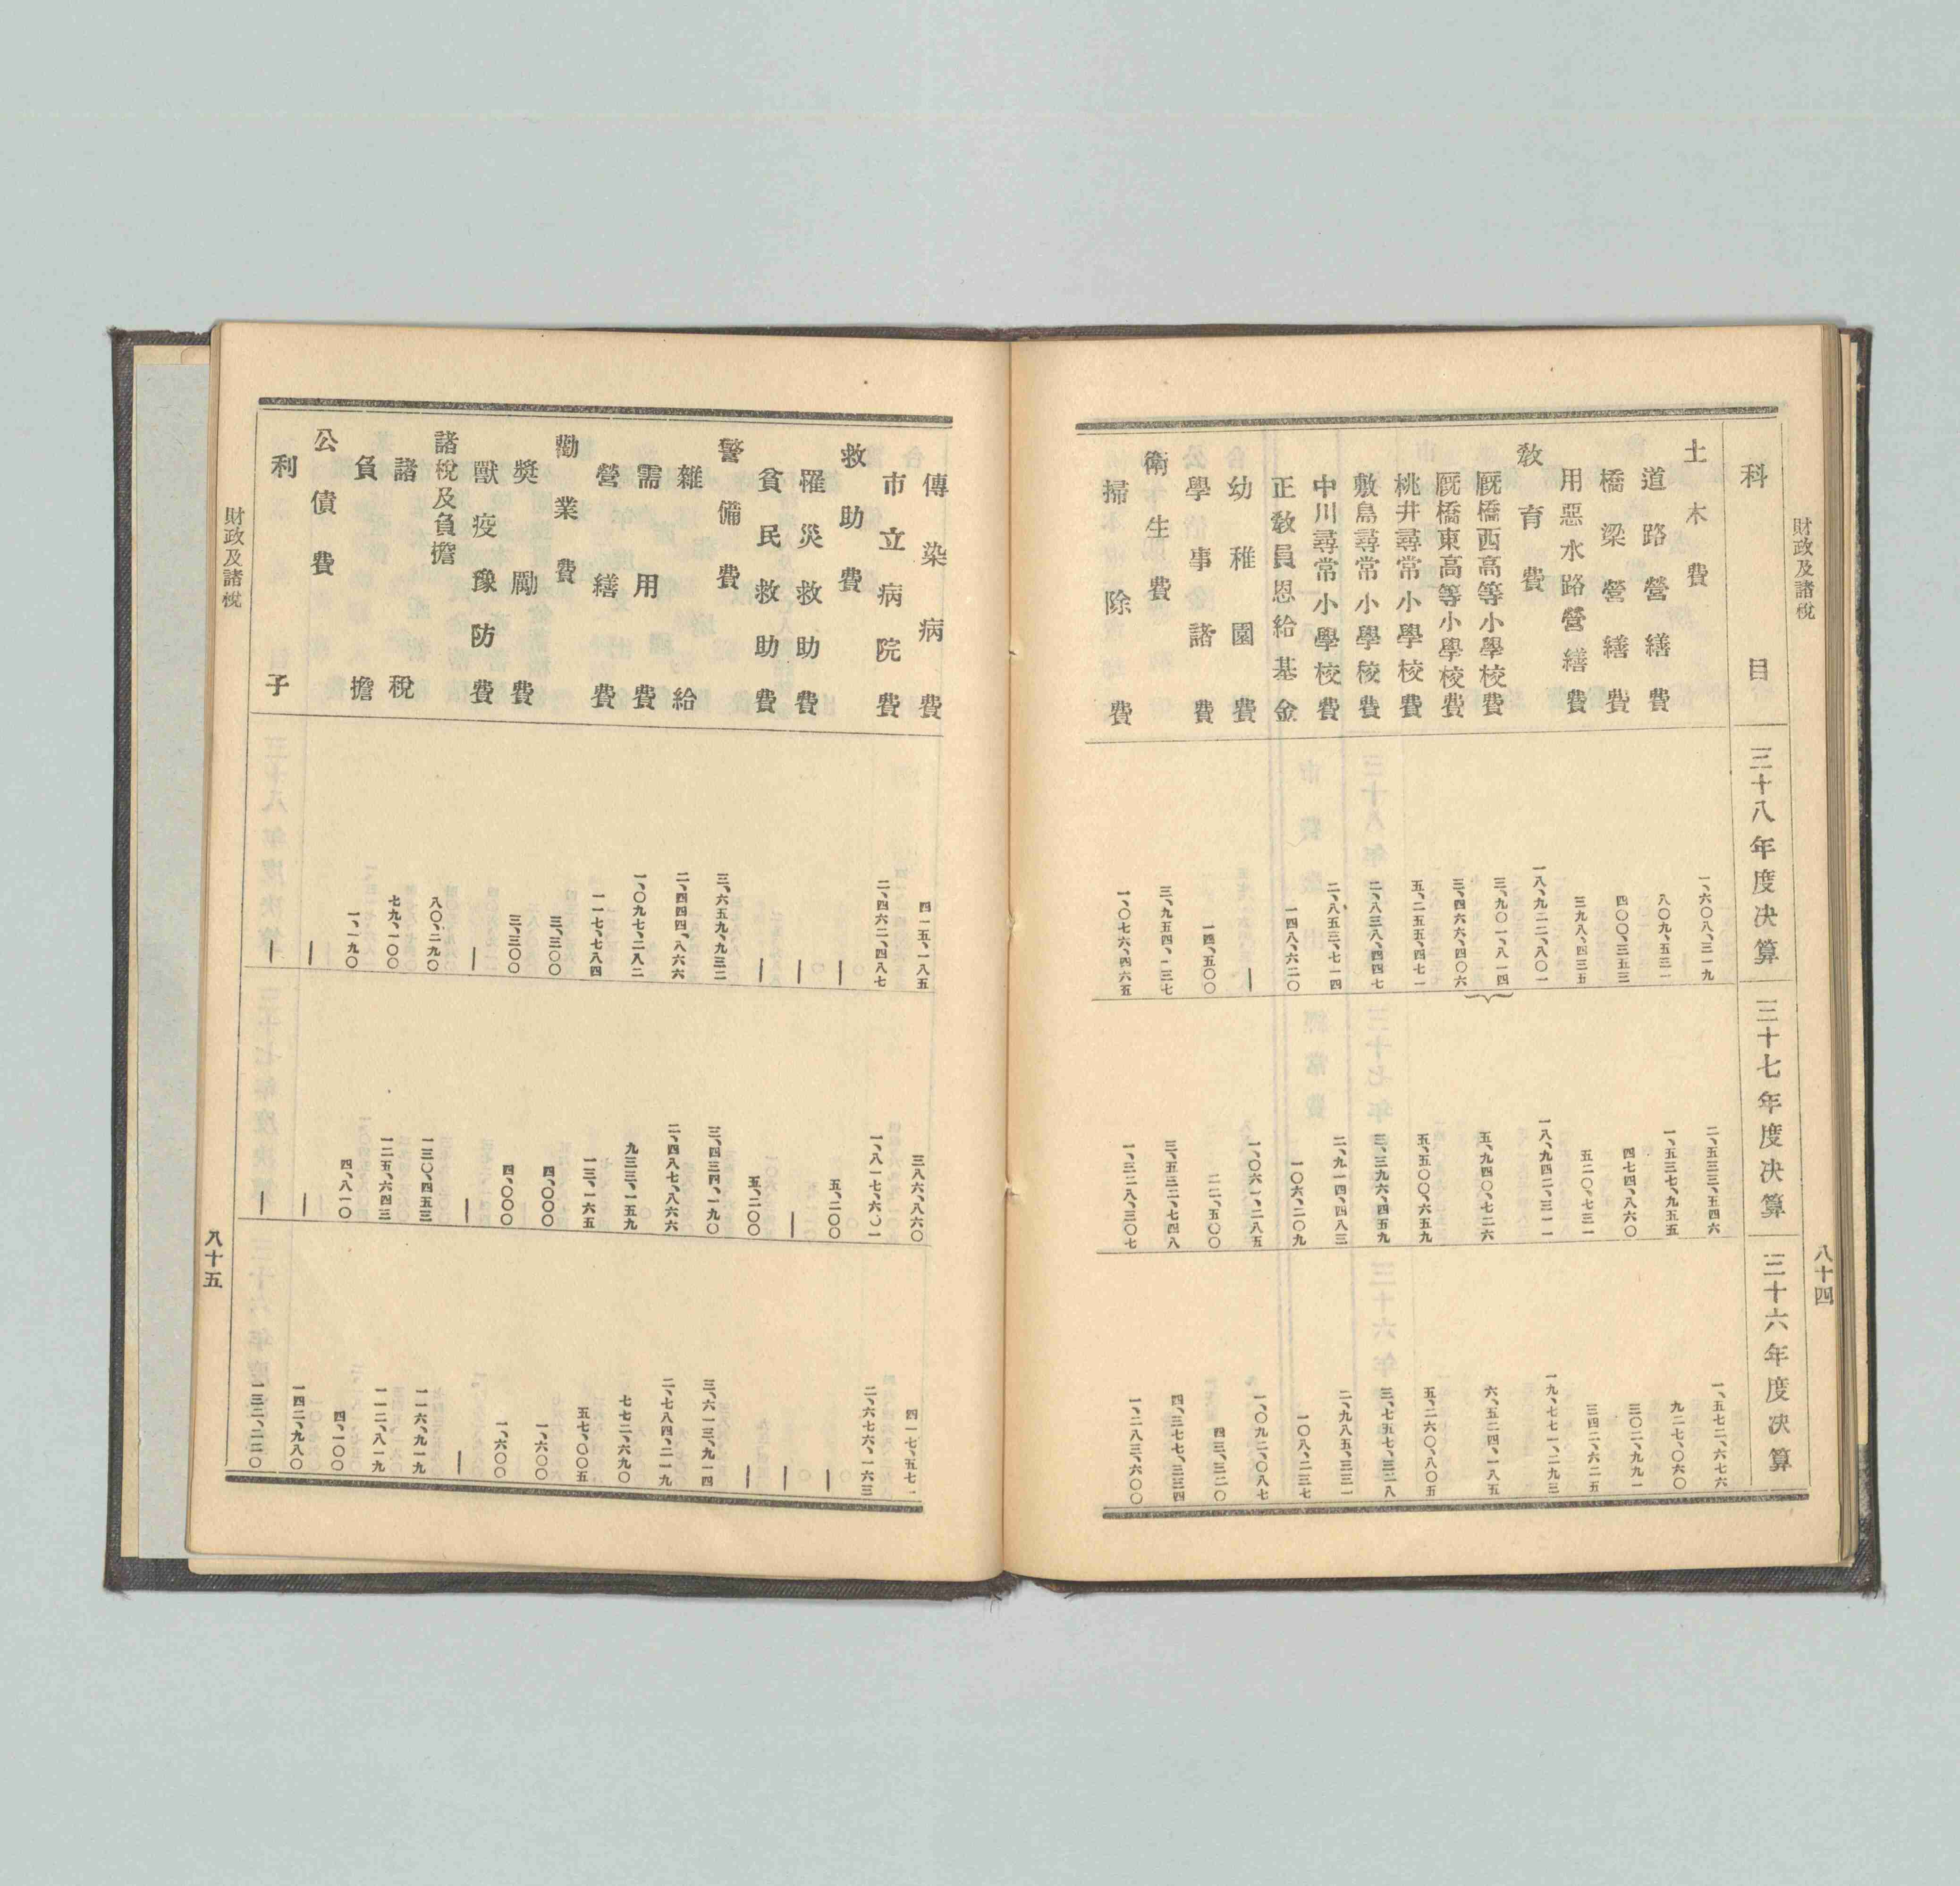 財政及諸稅
八十四
科目 三十八年度决算 三十七年度决算 三十六年度决算
土木費 一、六〇八、三一九 二、五三三、五四六 一、五七二、六七六
道路營繕費 八〇九、五三一 一、五三七、九五五 九二七、〇六〇
橋梁營繕費 四〇〇、三五三 四七四、八六〇 三〇二、九九一
用惡水路營繕費 三九八、四三五 五二〇、七三一 三四二、六二五
敎育費 一八、九二二、八〇一 一八、九四二、三一一 一九、七七一、二九三
厩橋西高等小學校費 三、九〇一、八一四 五、九四〇、七二六 六、五二四、一八五
厩橋東高等小學校費 三、四六六、四〇六
桃井尋常小學校費 五、二五五、四七一 五、五〇〇、六五九 五、二六〇、八〇五
敷島尋常小學校費 二、八三八、四四七 三、三九六、四五九 三、七五七、三二八
中川尋常小學校費 二、八五三、七一四 二、九一四、四八三 二、九八五、三三一
正敎員恩給基金 一四八、六二〇 一〇六、二〇九 一〇八、二三七
幼稚園費 ― 一、〇六一、二八五 一、〇九二、〇八七
學事諸費 一四、五〇〇 二二、五〇〇 四三、三二〇
衛生費 三、九五四、一三七 三、五三二、七四八 四、三七七、三三四
掃除費 一、〇七六、四六五 一、三二八、三〇七 一、二八三、六〇〇
傳染病費 四一五、一八五 三八六、八六〇 四一七、五七一
市立病院費 二、四六二、四八七 一、八一七、六〇一 二、六七六、一六三
救助費 ― 五、二〇〇 ―
罹災救助費 ― ― ―
貧民救助費 ― 五、二〇〇 ―
警備費 三、六五九、九三二 三、四三四、一九〇 三、六一三、九一四
雜給 二、四四四、八六六 二、四八七、八六六 二、七八四、二一九
需用費 一、〇九七、二八二 九三三、一五九 七七二、六九〇
營繕費 一一七、七八四 一三、一六五 五七、〇〇五
勸業費 三、三〇〇 四、〇〇〇 一、六〇〇
奬勵費 三、三〇〇 四、〇〇〇 一、六〇〇
獸疫豫防費 ― ― ―
諸稅及負擔 八〇、二九〇 一三〇、四五三 一一六、九一九
諸稅 七九、一〇〇 一二五、六四三 一一二、八一九
負擔 一、一九〇 四、八一〇 四、一〇〇
公債費 ― ― 一四二、九八〇
利子 ― ― 一三二、二二〇
財政及諸稅
八十五